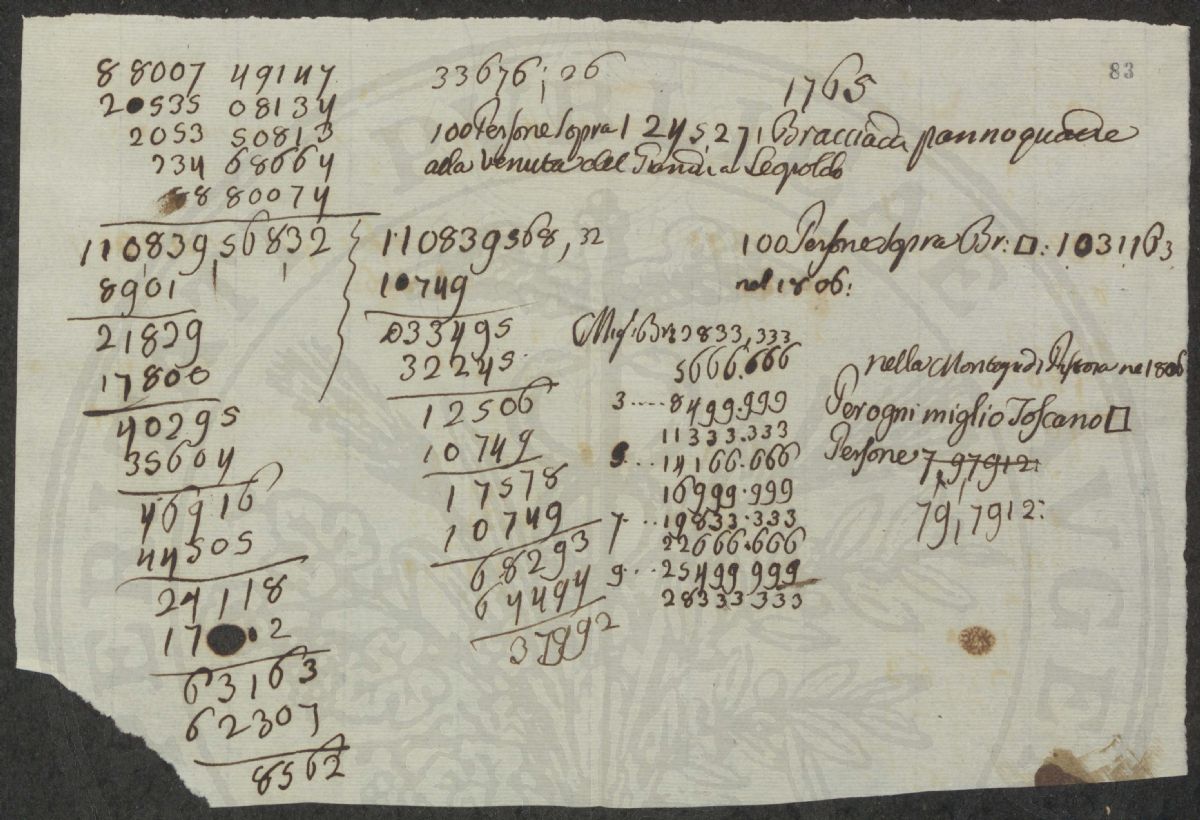 83
88007 49147
20535 08134
2053 50813
234 68664
88 80074
110839,56832
8901
21829
17800
40295
35604
46916
44505
24118
17 2
63163
62307
8562
33676;26
1765
100 Persone sopra 1245,271 Braccia di panno quadre
alla venuta del Granduca Leopoldo
110839568,32
10749
033495
32245
12506
10749
17578
10749
68293
64494
37992
100 Persone sopra Br: □: 1031163
nel 1806:
Migl: Br: 2833,333
5666.666
3....8499.999
11333.333
5...14166.666
16999.999
7...19833.333
22666.666
9...25499 999
28333.333
nella di Pistoia nel 1806
Per ogni miglio Toscano □
Persone 7,97912:
79,7912: